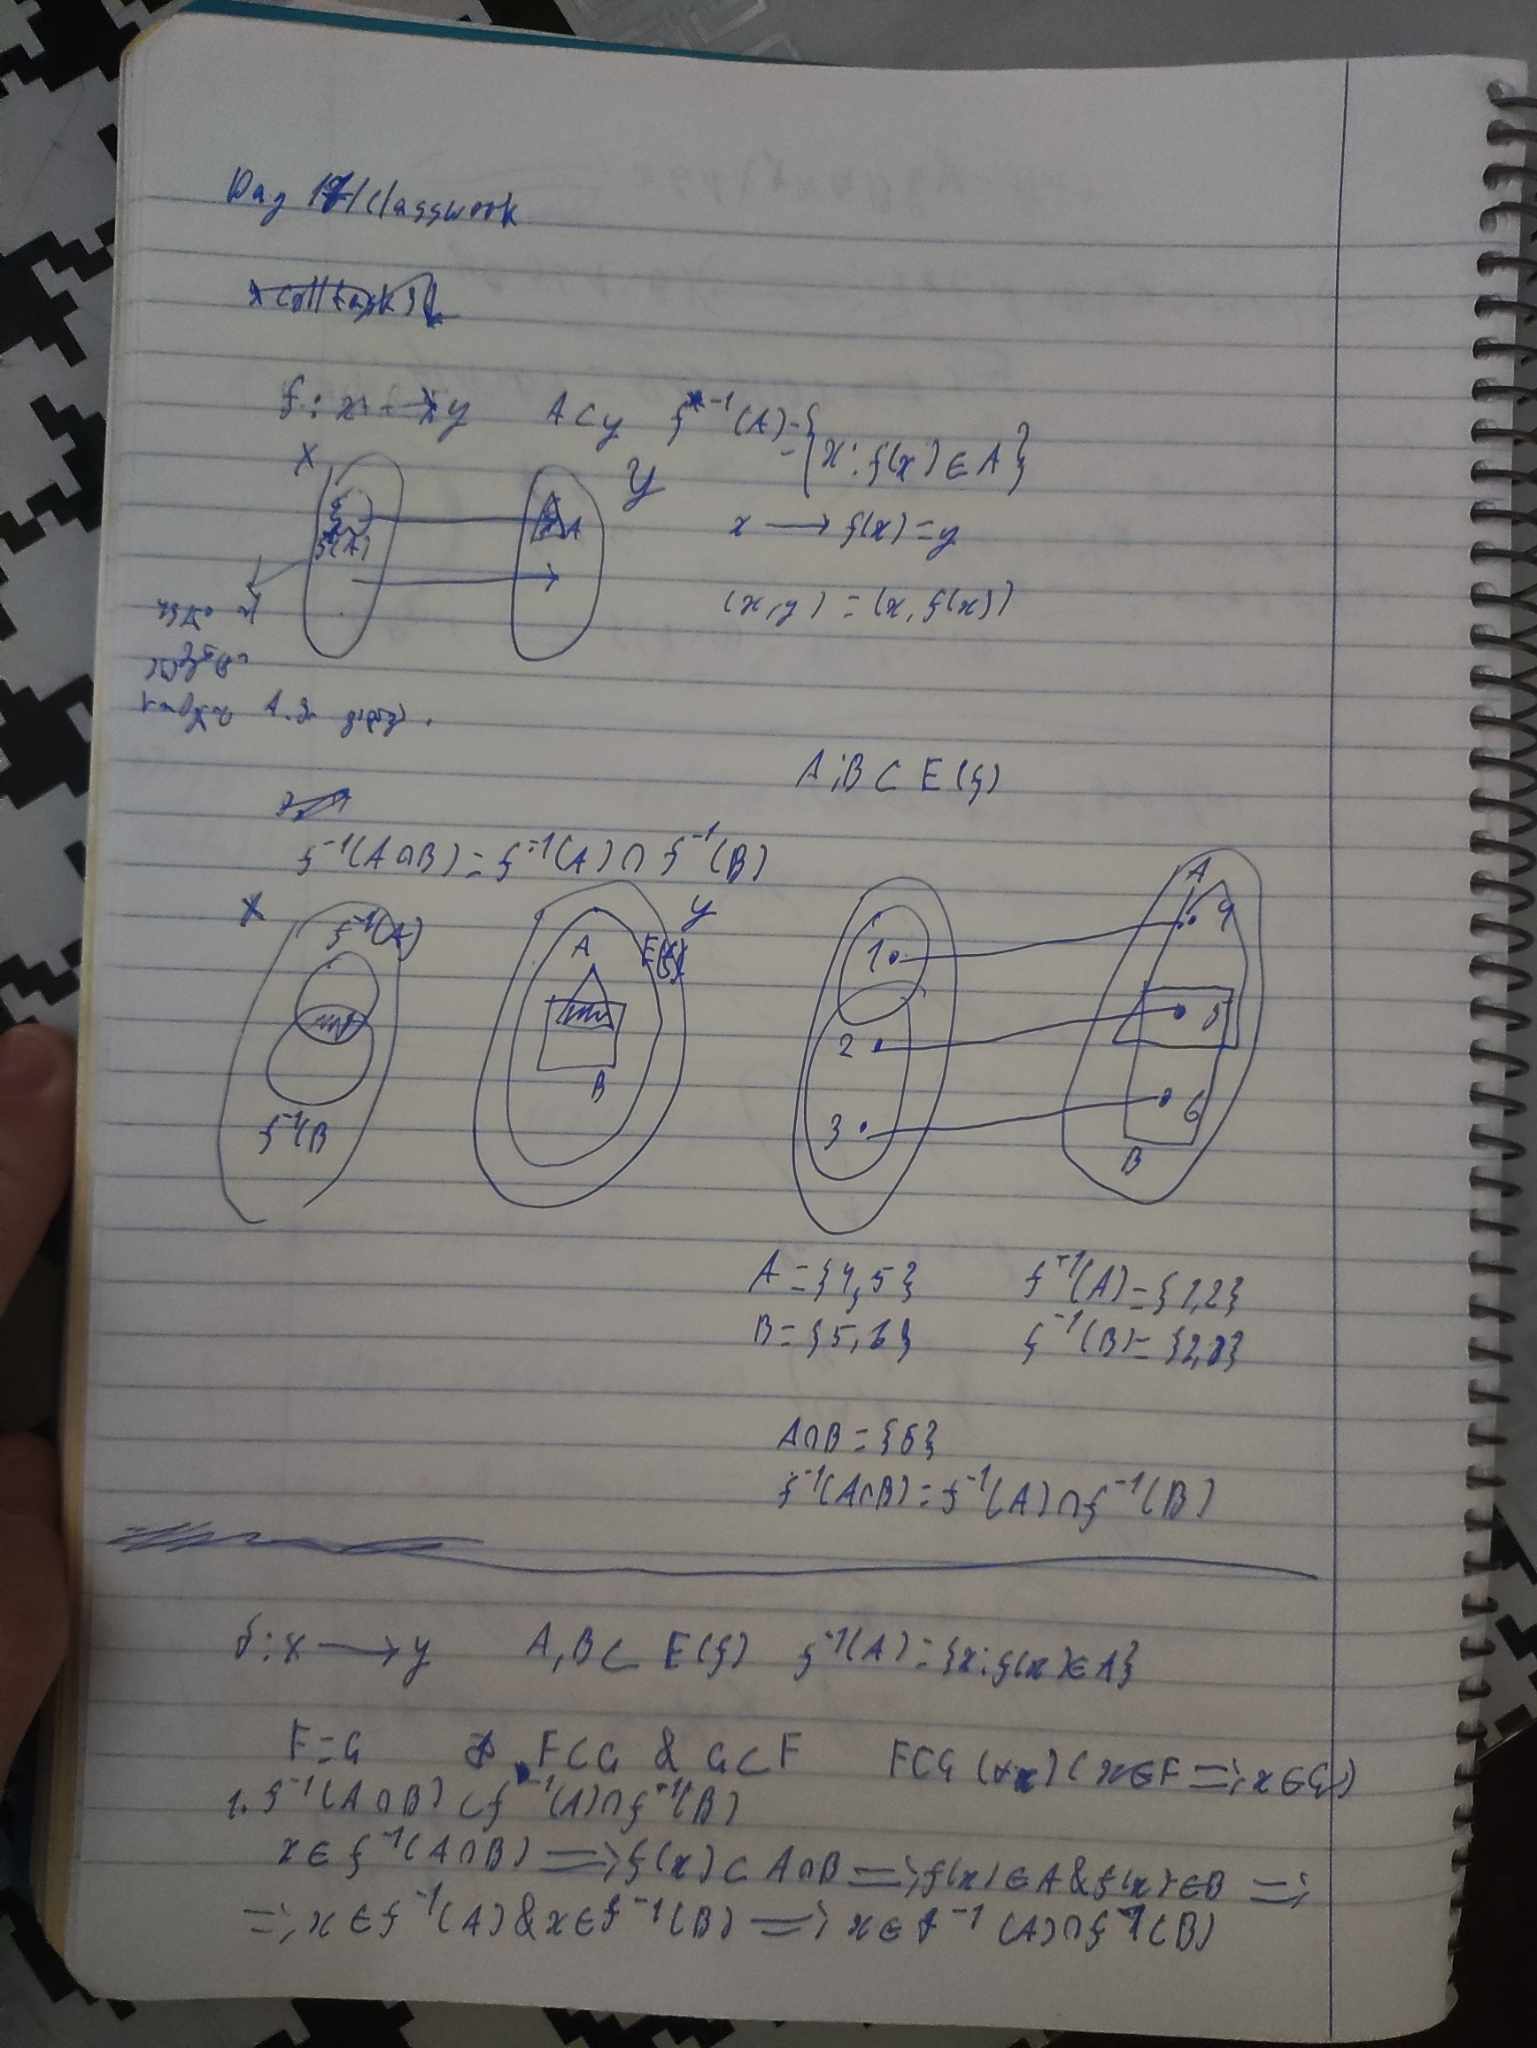 Day 17/Classwork
f: x → y A ⊂ y f⁻¹(A) = {x: f(x) ∈ A}
X Y
f(A) A
x → f(x) = y
(x, y) = (x, f(x))
A.
A;B ⊂ E(f)
f⁻¹(A∩B) = f⁻¹(A) ∩ f⁻¹(B)
X f⁻¹(A) A E(f) y
f⁻¹(B B
A
1 4
2 5
3 6
B
A = {4,5} f⁻¹(A) = {1,2}
B = {5,6} f⁻¹(B) = {2,3}
A∩B = {5}
f⁻¹(A∩B) = f⁻¹(A) ∩ f⁻¹(B)
f: x → y A,B ⊂ E(f) f⁻¹(A) = {x: f(x) ∈ A}
F = G F⊂G & G⊂F F⊂G (∀x) (x∈F ⇒ x∈G)
1. f⁻¹(A∩B) ⊂ f⁻¹(A) ∩ f⁻¹(B)
x ∈ f⁻¹(A∩B) ⇒ f(x) ⊂ A∩B ⇒ f(x) ∈ A & f(x) ∈ B ⇒
⇒ x ∈ f⁻¹(A) & x ∈ f⁻¹(B) ⇒ x ∈ f⁻¹(A) ∩ f⁻¹(B)